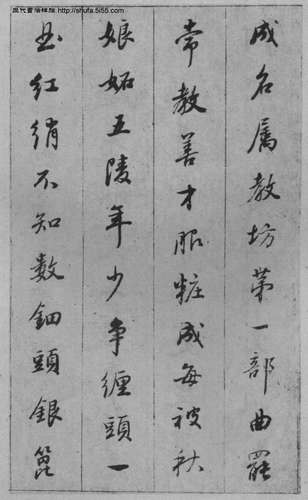 历代书法碑帖 http://shufa.5i55.com
成名屬教坊第一部曲罷
常教善才服粧成每被秋
娘妬五陵年少争纏頭一
曲红绡不知数鈿頭銀篦